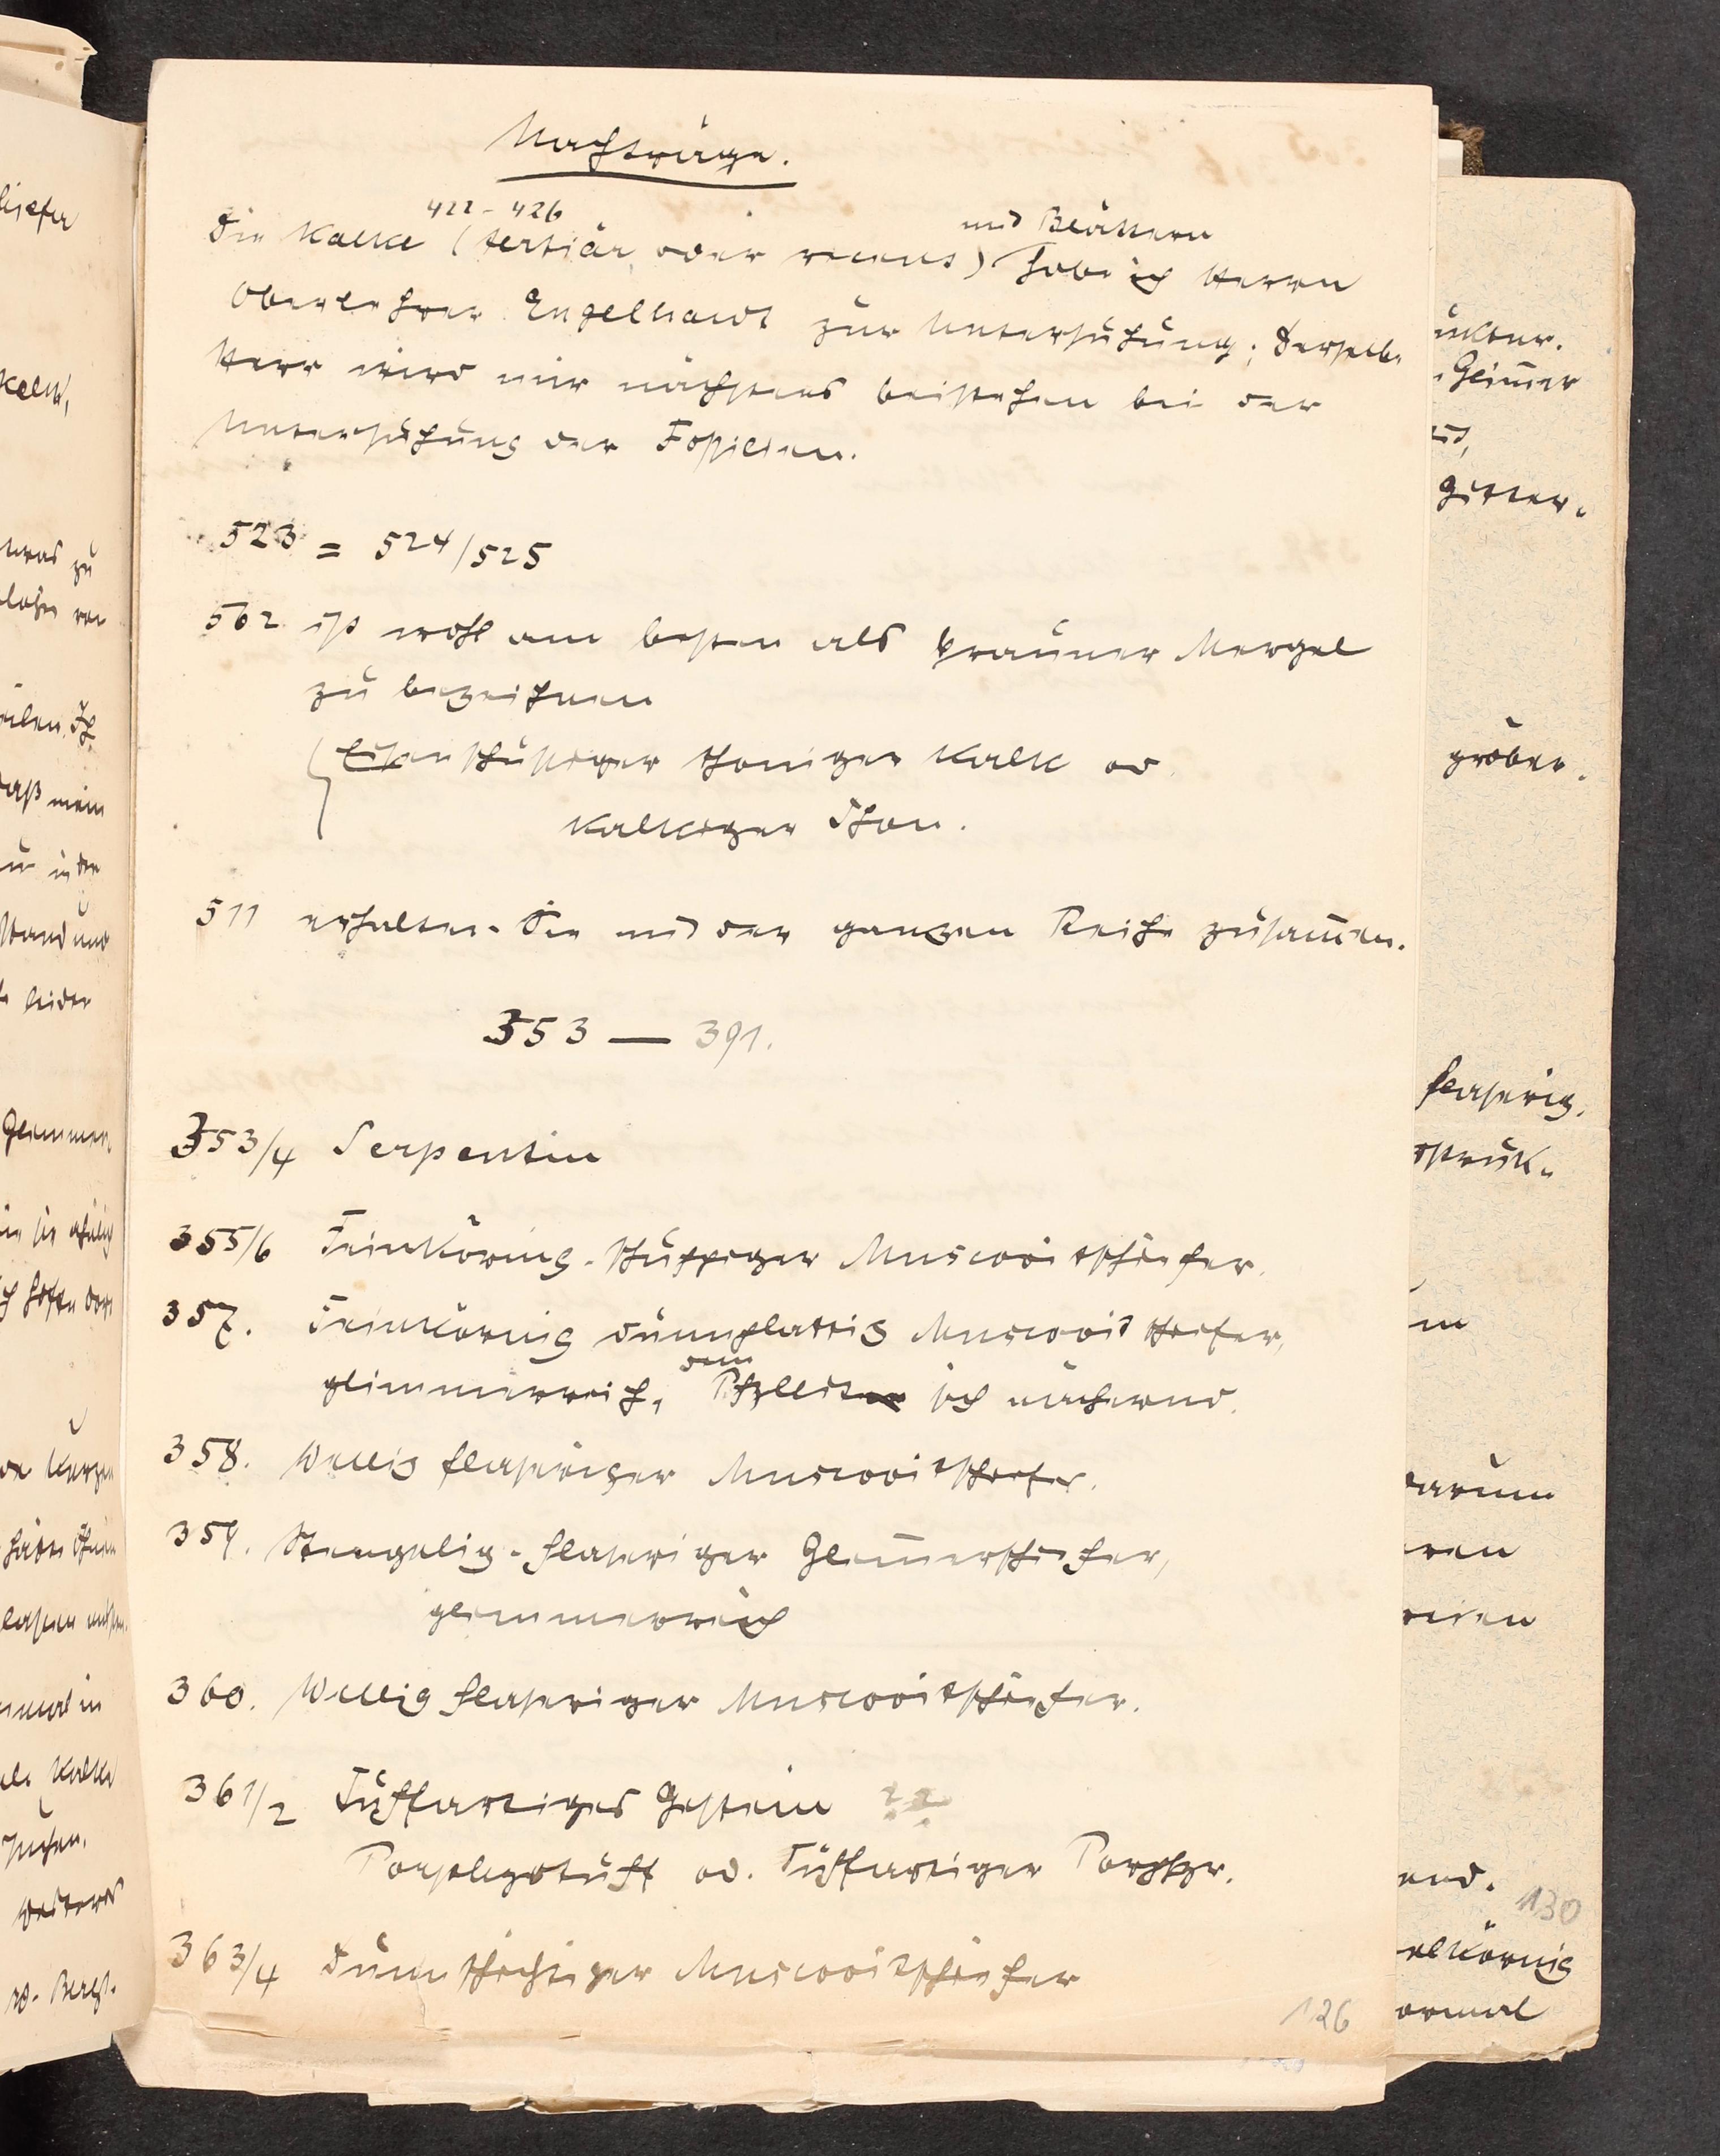 Nachträge.
422-426
mit Blättern
Die Kalke (tertiär oder recens) habe ich Herrn
Oberlehrer Engelhardt zur Untersuchung; derselbe
Herr wird mir nächstens beistehen bei der
Untersuchung der Fossilien.
523 = 524/525
562 ist wohl am besten als brauner Mergel
zu bezeichnen
Eisenschüssiger thoniger Kalk od.
Kalkiger Thon.
511 erhalten Sie mit der ganzen Reihe zusam̄en.
353 — 391.
353/4 Serpentin
355/6 Feinkörnig-schuppiger Muscovitschiefer.
357. Feinkörnig dünnplattig Muscovitschiefer,
glimmerreich, dem Phyllit sich nähernd.
358. Wellig flaseriger Muscovitschiefer.
359. Stengelig-flaseriger Glim̄erschiefer,
glimmerreich
360. Wellig flaseriger Muscovitschiefer.
361/2 Tuffartiges Gestein ??
Porphyrtuff od. Tuffartiger Porphyr.
363/4 Dünnschichtiger Muscovitschiefer
126
gröber.
flaserig.
130